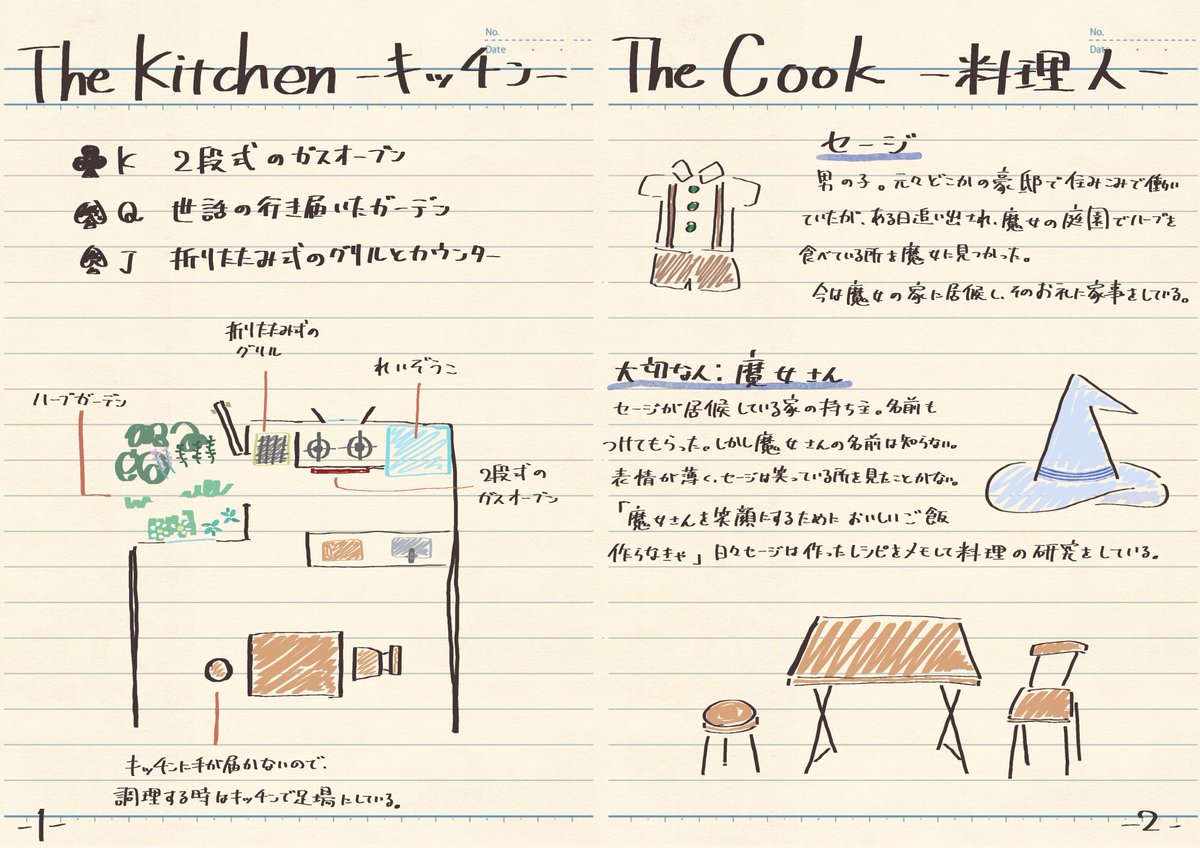 No.
Date
The Kitchen -キッチン-
♣ K 2段式のガスオーブン
♠ Q 世話の行き届いたガーデン
♠ J 折りたたみ式のグリルとカウンター
折りたたみ式の
グリル
れいぞうこ
ハーブガーデン
2段式の
ガスオーブン
キッチンに手が届かないので、
調理する時はキッチンで足場にしている。
-1-
No.
Date
The Cook -料理人-
セージ
男の子。元々どこかの豪邸で住みこみで働い
ていたが、ある日追い出され、魔女の庭園でハーブを
食べている所を魔女に見つかった。
今は魔女の家に居候し、そのお礼に家事をしている。
大切な人:魔女さん
セージが居候している家の持ち主。名前も
つけてもらった。しかし魔女さんの名前は知らない。
表情が薄く、セージは笑っている所を見たことがない。
「魔女さんを笑顔にするために おいしいご飯
作らなきゃ」日々セージは作ったレシピをメモして料理の研究をしている。
-2-